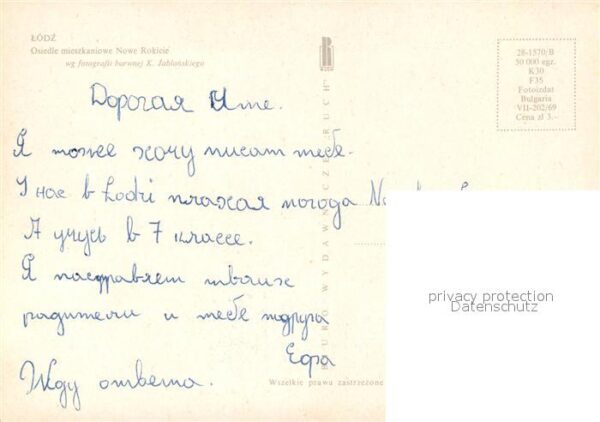 ŁÓDŹ
Osiedle mieszkaniowe Nowe Rokicie
wg fotografii barwnej K. Jabłońskiego
BIURO WYDAWNICZE „RUCH”
28-1570/B
30 000 egz.
K30
F35
Fotoizdat
Bulgaria
VII-202/69
Cena zł 3.—
Дорогая Уте.
Я тоже хочу писат тебе.
У нас в Łodzi плахая погода
Я учусь в 7 классе.
Я поздравяет твоих
радители и тебе подруга
Ефа
Жду ответа.
Wszelkie prawa zastrzeżone
privacy protection
Datenschutz